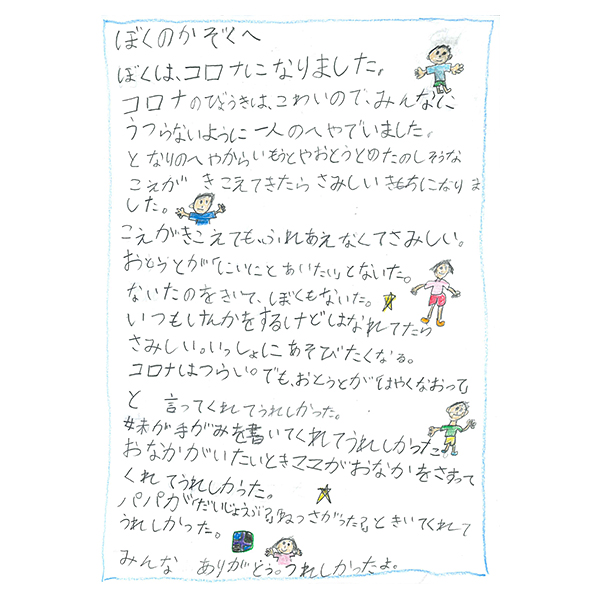 ぼくのかぞくへ
ぼくは、コロナになりました。
コロナのびょうきは、こわいので、みんなに
うつらないように一人のへやでいました。
となりのへやからいもうとやおとうとのたのしそうな
こえが きこえてきたら さみしいきもちになりま
した。
こえがきこえても、ふれあえなくてさみしい。
おとうとが「にいにとあいたい」とないた。
ないたのをきいて、ぼくもないた。
いつもけんかをするけどはなれてたら
さみしい。いっしょにあそびたくなる。
コロナはつらい。でも、おとうとが「はやくなおって
と 言ってくれてうれしかった。
妹が手がみを書いてくれてうれしかった
おなかがいたいときママがおなかをさすって
くれてうれしかった。
パパが「だいじょうぶ?」「ねつさがった?」ときいてくれて
うれしかった。
みんな ありがとう。うれしかったよ。